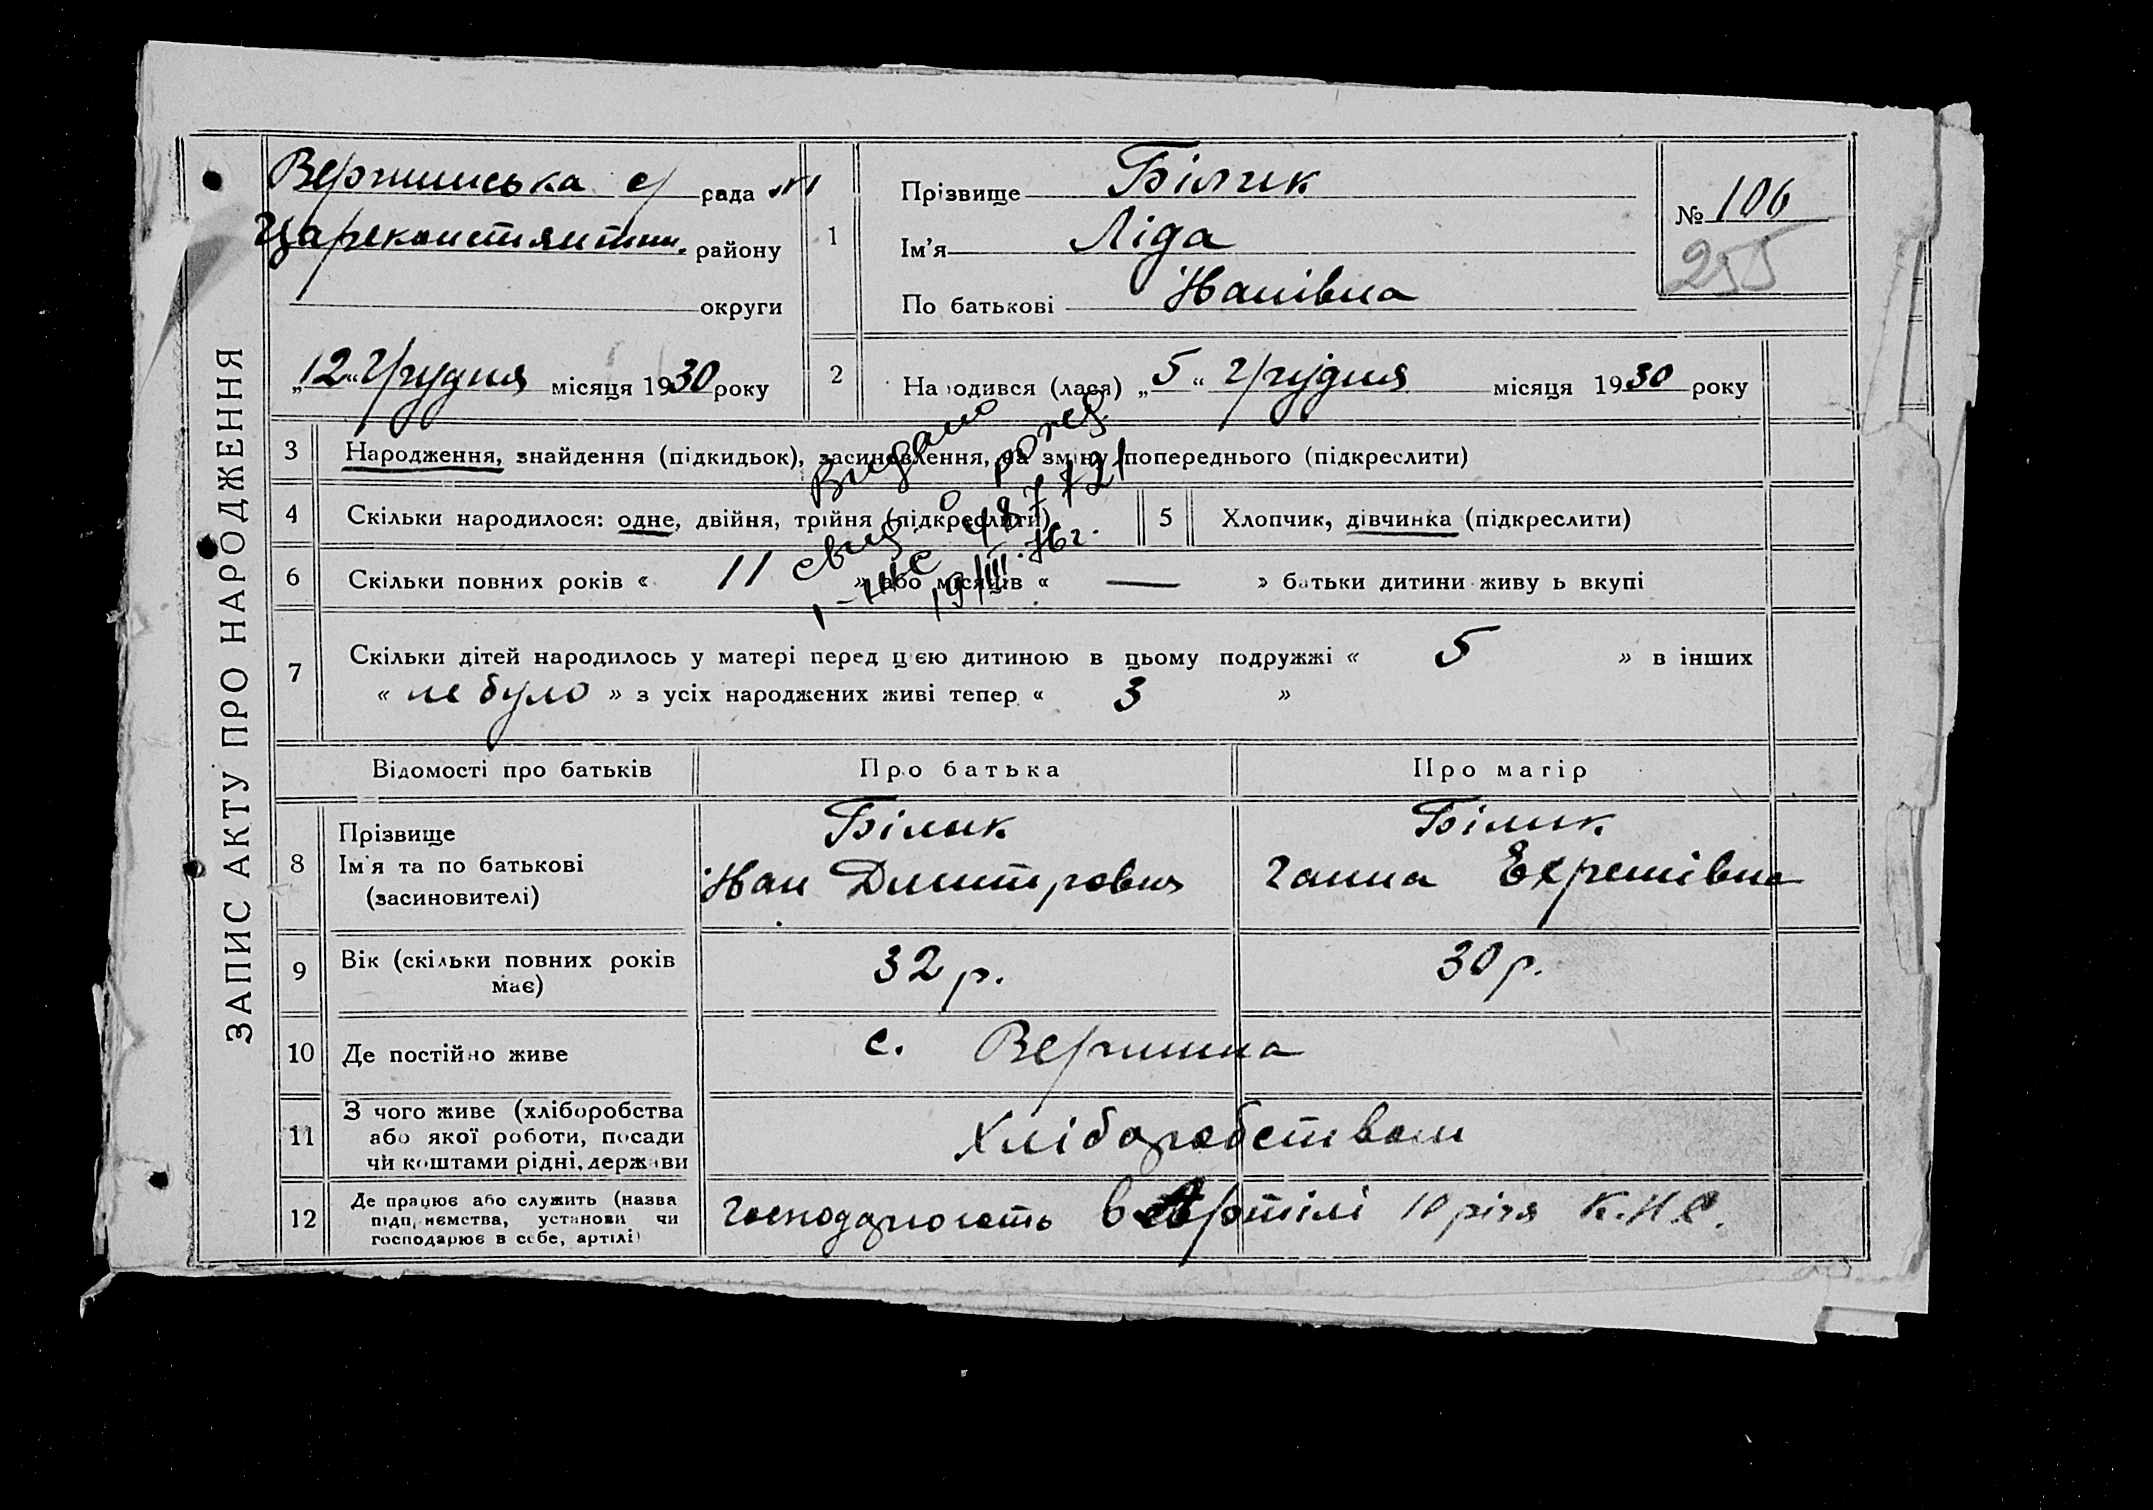 ЗАПИС АКТУ ПРО НАРОДЖЕННЯ
Вершинська с/рада
Цареконстянтин. району
округи
„12“ грудня місяця 1930 року
1
Прізвище Білик
Ім’я Ліда
По батькові Іванівна
№ 106
255
2
Народився (лася) „5“ грудня місяця 1930 року
3 Народження, знайдення (підкидьок), засиновлення, на зміну попереднього (підкреслити)
4 Скільки народилося: одне, двійня, трійня (підкреслити)
5 Хлопчик, дівчинка (підкреслити)
Видано
свид о рожд
I-ЖС 487721
19/III.76г.
6 Скільки повних років « 11 » або місяців « — » батьки дитини живуть вкупі
7 Скільки дітей народилось у матері перед цією дитиною в цьому подружжі « 5 » в інших
« не було » з усіх народжених живі тепер « 3 »
Відомості про батьків Про батька Про матір
8 Прізвище
Ім’я та по батькові
(засиновителі)
Білик
Іван Дмитрович
Білик
Ганна Ехремівна
9 Вік (скільки повних років
має)
32 р.
30 р.
10 Де постійно живе
с. Вершина
11 З чого живе (хліборобства
або якої роботи, посади
чи коштами рідні, держави
Хліборобством
12 Де працює або служить (назва
підприємства, установи чи
господарює в себе, артілі)
господарюють в Артілі 10 річя К.Н.С.